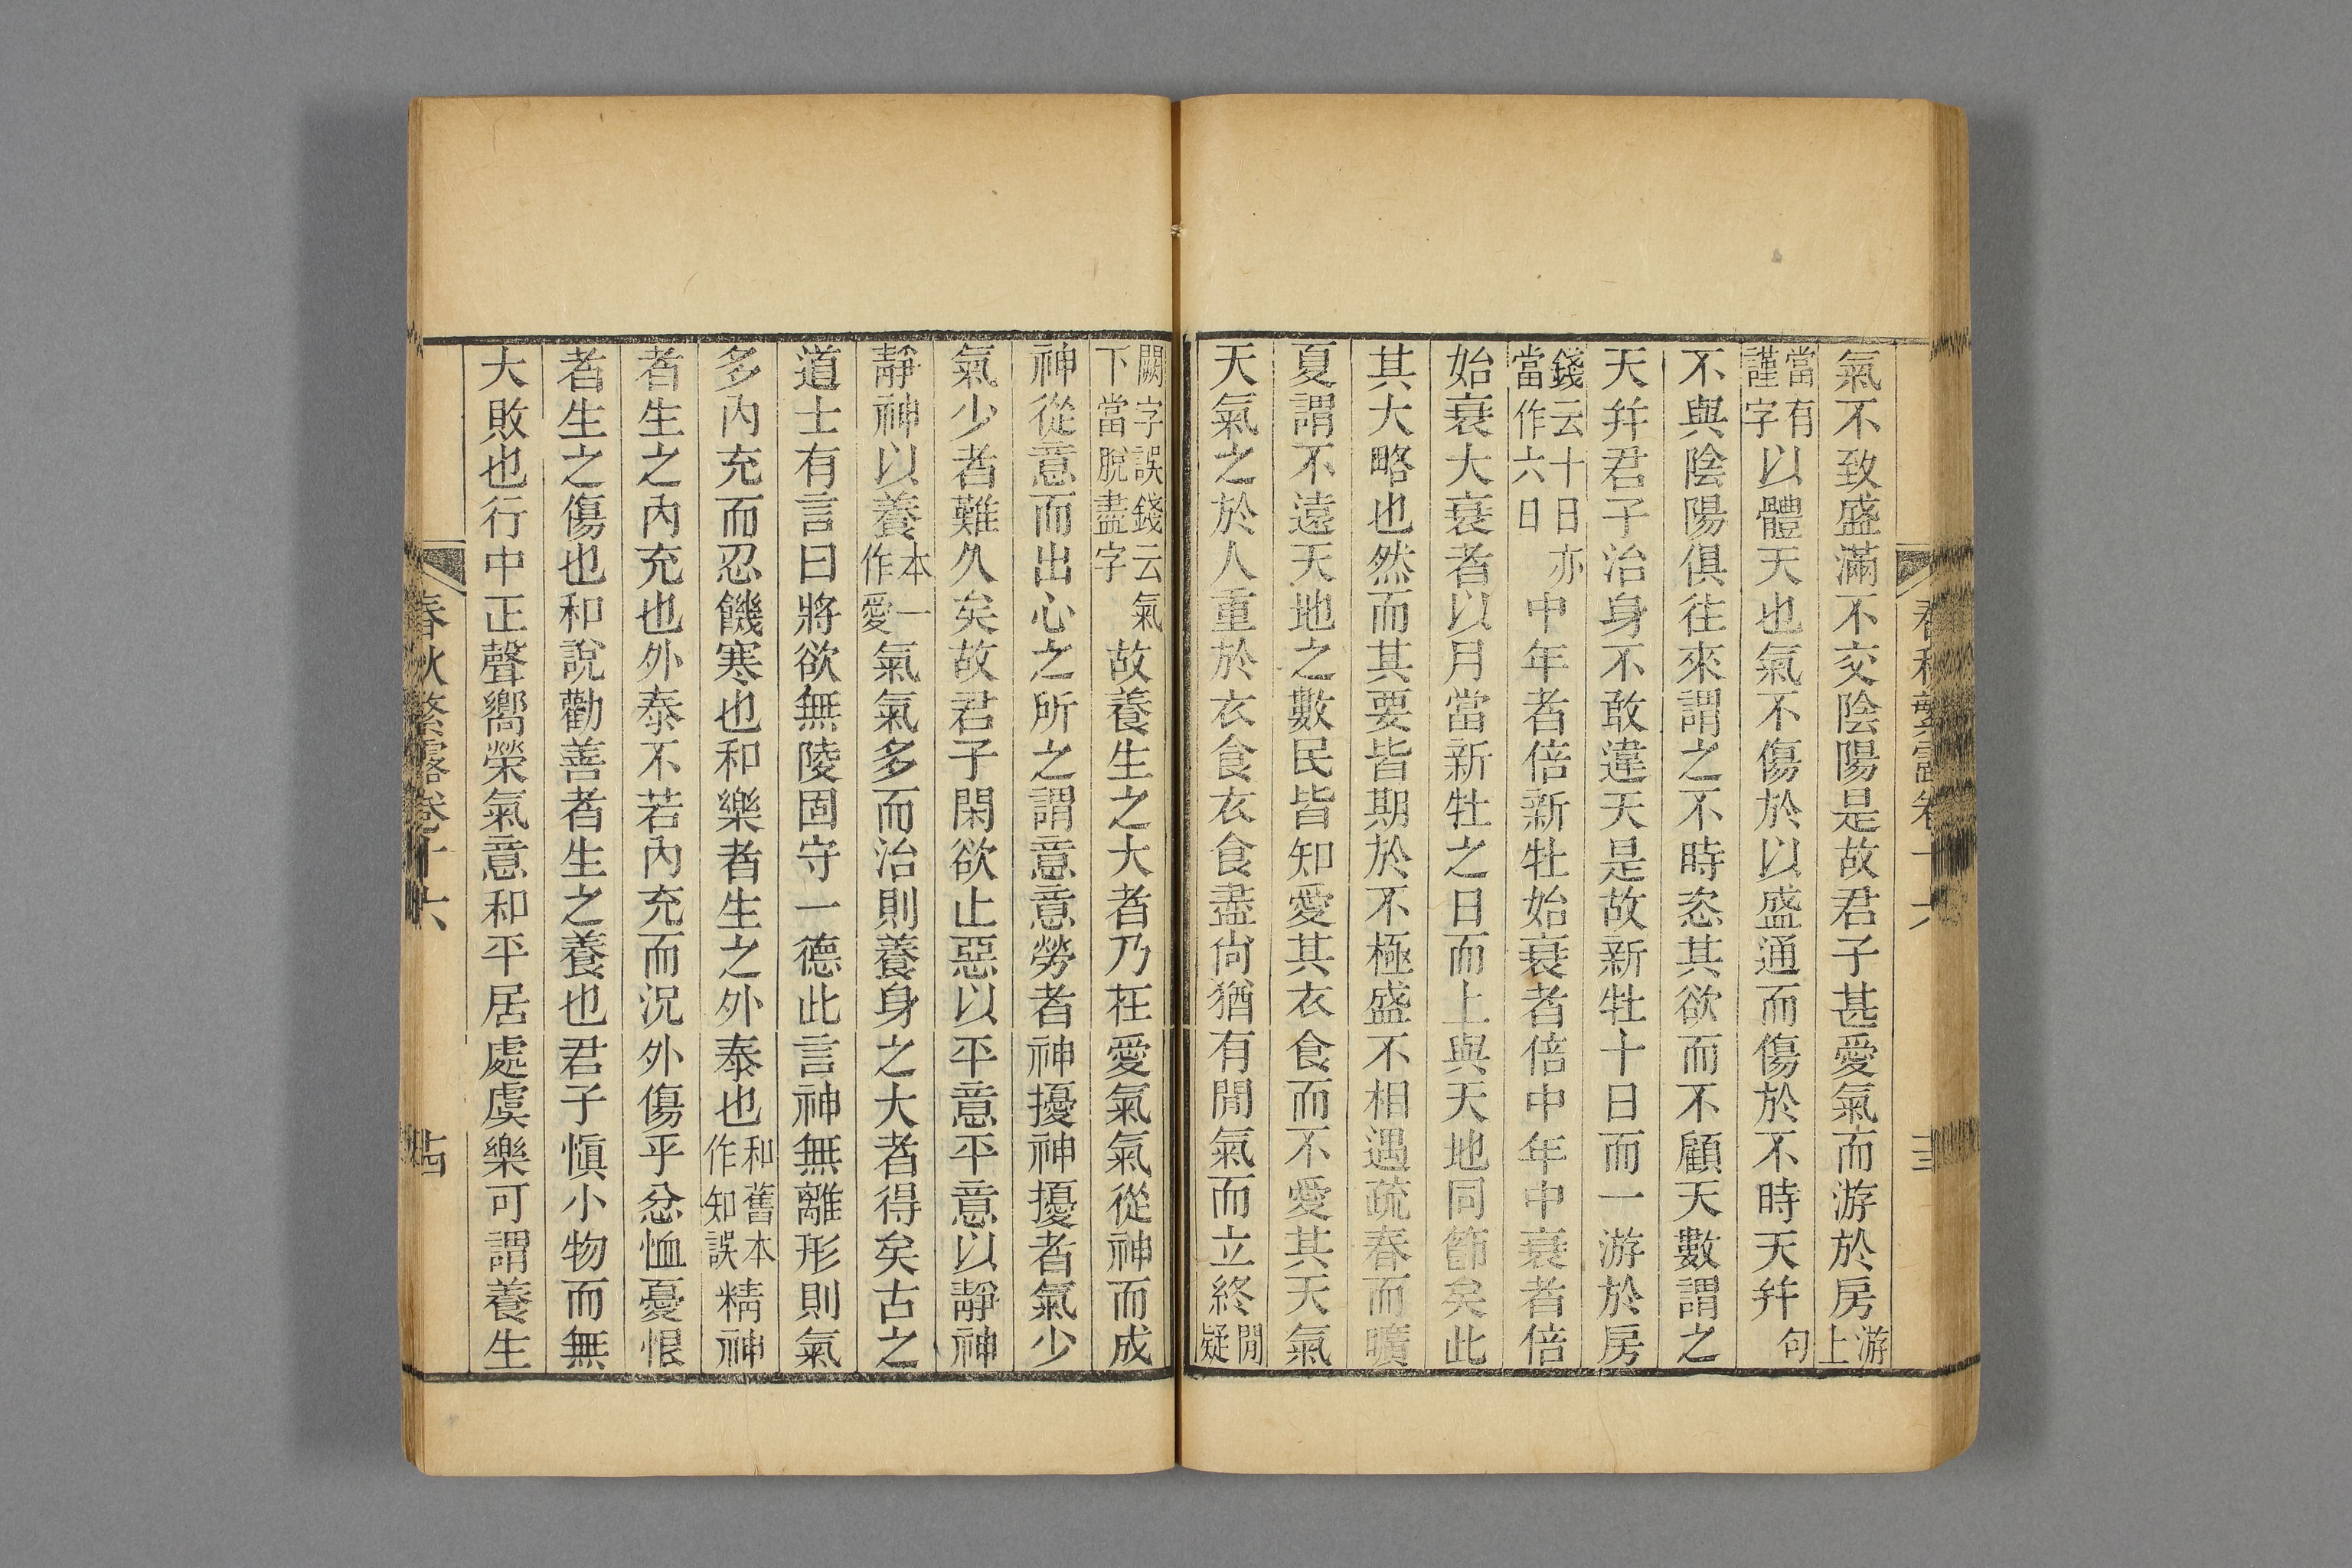 氣不致盛滿不交陰陽是故君子甚愛氣而游於房游上
當有謹字以體天也氣不傷於以盛通而傷於不時天幷句
不與陰陽俱往來謂之不時恣其欲而不顧天數謂之
天幷君子治身不敢違天是故新牡十日而一游於房
錢云十日亦當作六日中年者倍新牡始衰者倍中年中衰者倍
始衰大衰者以月當新牡之日而上與天地同節矣此
其大略也然而其要皆期於不極盛不相遇疏春而曠
夏謂不遠天地之數民皆知愛其衣食而不愛其天氣
天氣之於人重於衣食衣食盡尙猶有閒氣而立終閒疑
闕字誤錢云氣下當脫盡字故養生之大者乃在愛氣氣從神而成
神從意而出心之所之謂意意勞者神擾神擾者氣少
氣少者難久矣故君子閑欲止惡以平意平意以靜神
靜神以養本一作愛氣氣多而治則養身之大者得矣古之
道士有言曰將欲無陵固守一德此言神無離形則氣
多內充而忍饑寒也和樂者生之外泰也和舊本作知誤精神
者生之內充也外泰不若內充而況外傷乎忿恤憂恨
者生之傷也和說勸善者生之養也君子愼小物而無
大敗也行中正聲嚮榮氣意和平居處虞樂可謂養生
春秋繁露卷十六